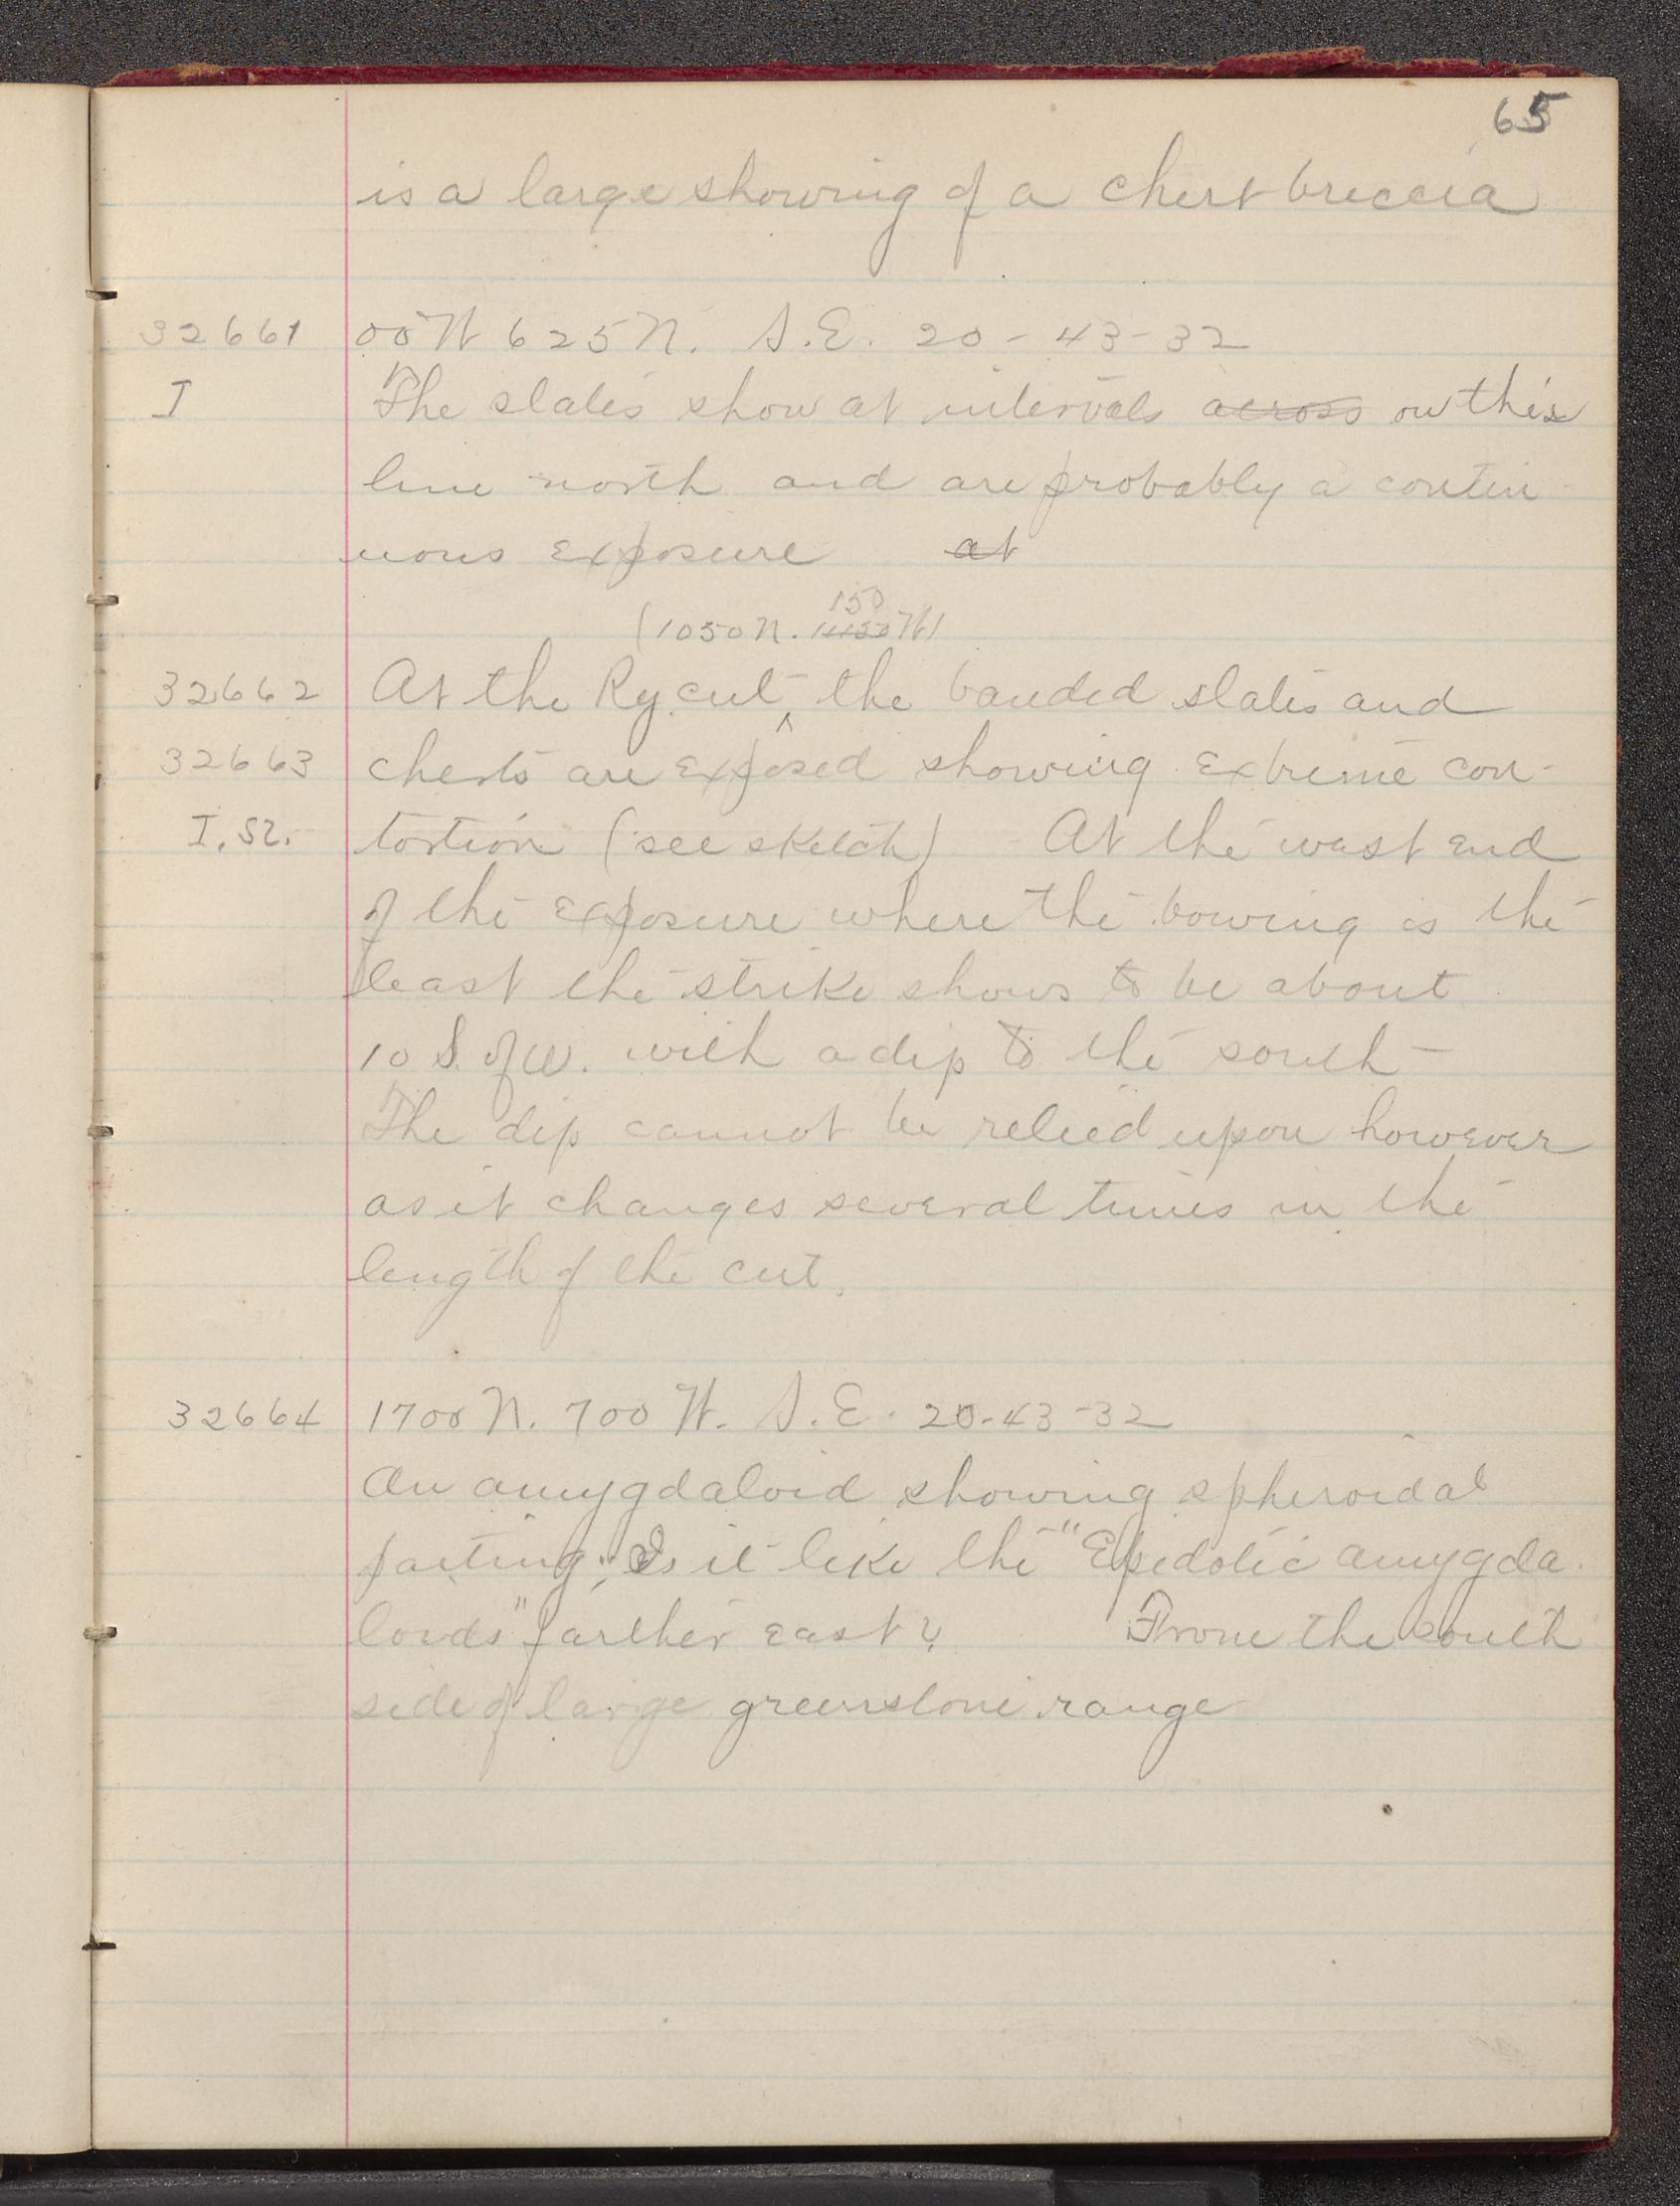 65
is a large showing of a chert breccia
32661 00 W 625 N. S.E. 20-43-32
I The slates show at intervals across on this
line north and are probably a contin
uous exposure at
150
(1050 N. W)
32662 At the Ry. cut, the banded slates and
32663 cherts are exposed showing extreme con-
I, S2. tortion (see sketch) At the west end
of the exposure where the bowing is the
least the strike shows to be about
10 S. of W. with a dip to the south —
The dip cannot be relied upon however
as it changes several times in the
length of the cut.
32664 1700 N. 700 W. S.E. 20-43-32
An amygdaloid showing spheroidal
parting. Is it like the "Epidotic amygda
loids" farther east? From the south
side of large greenstone range